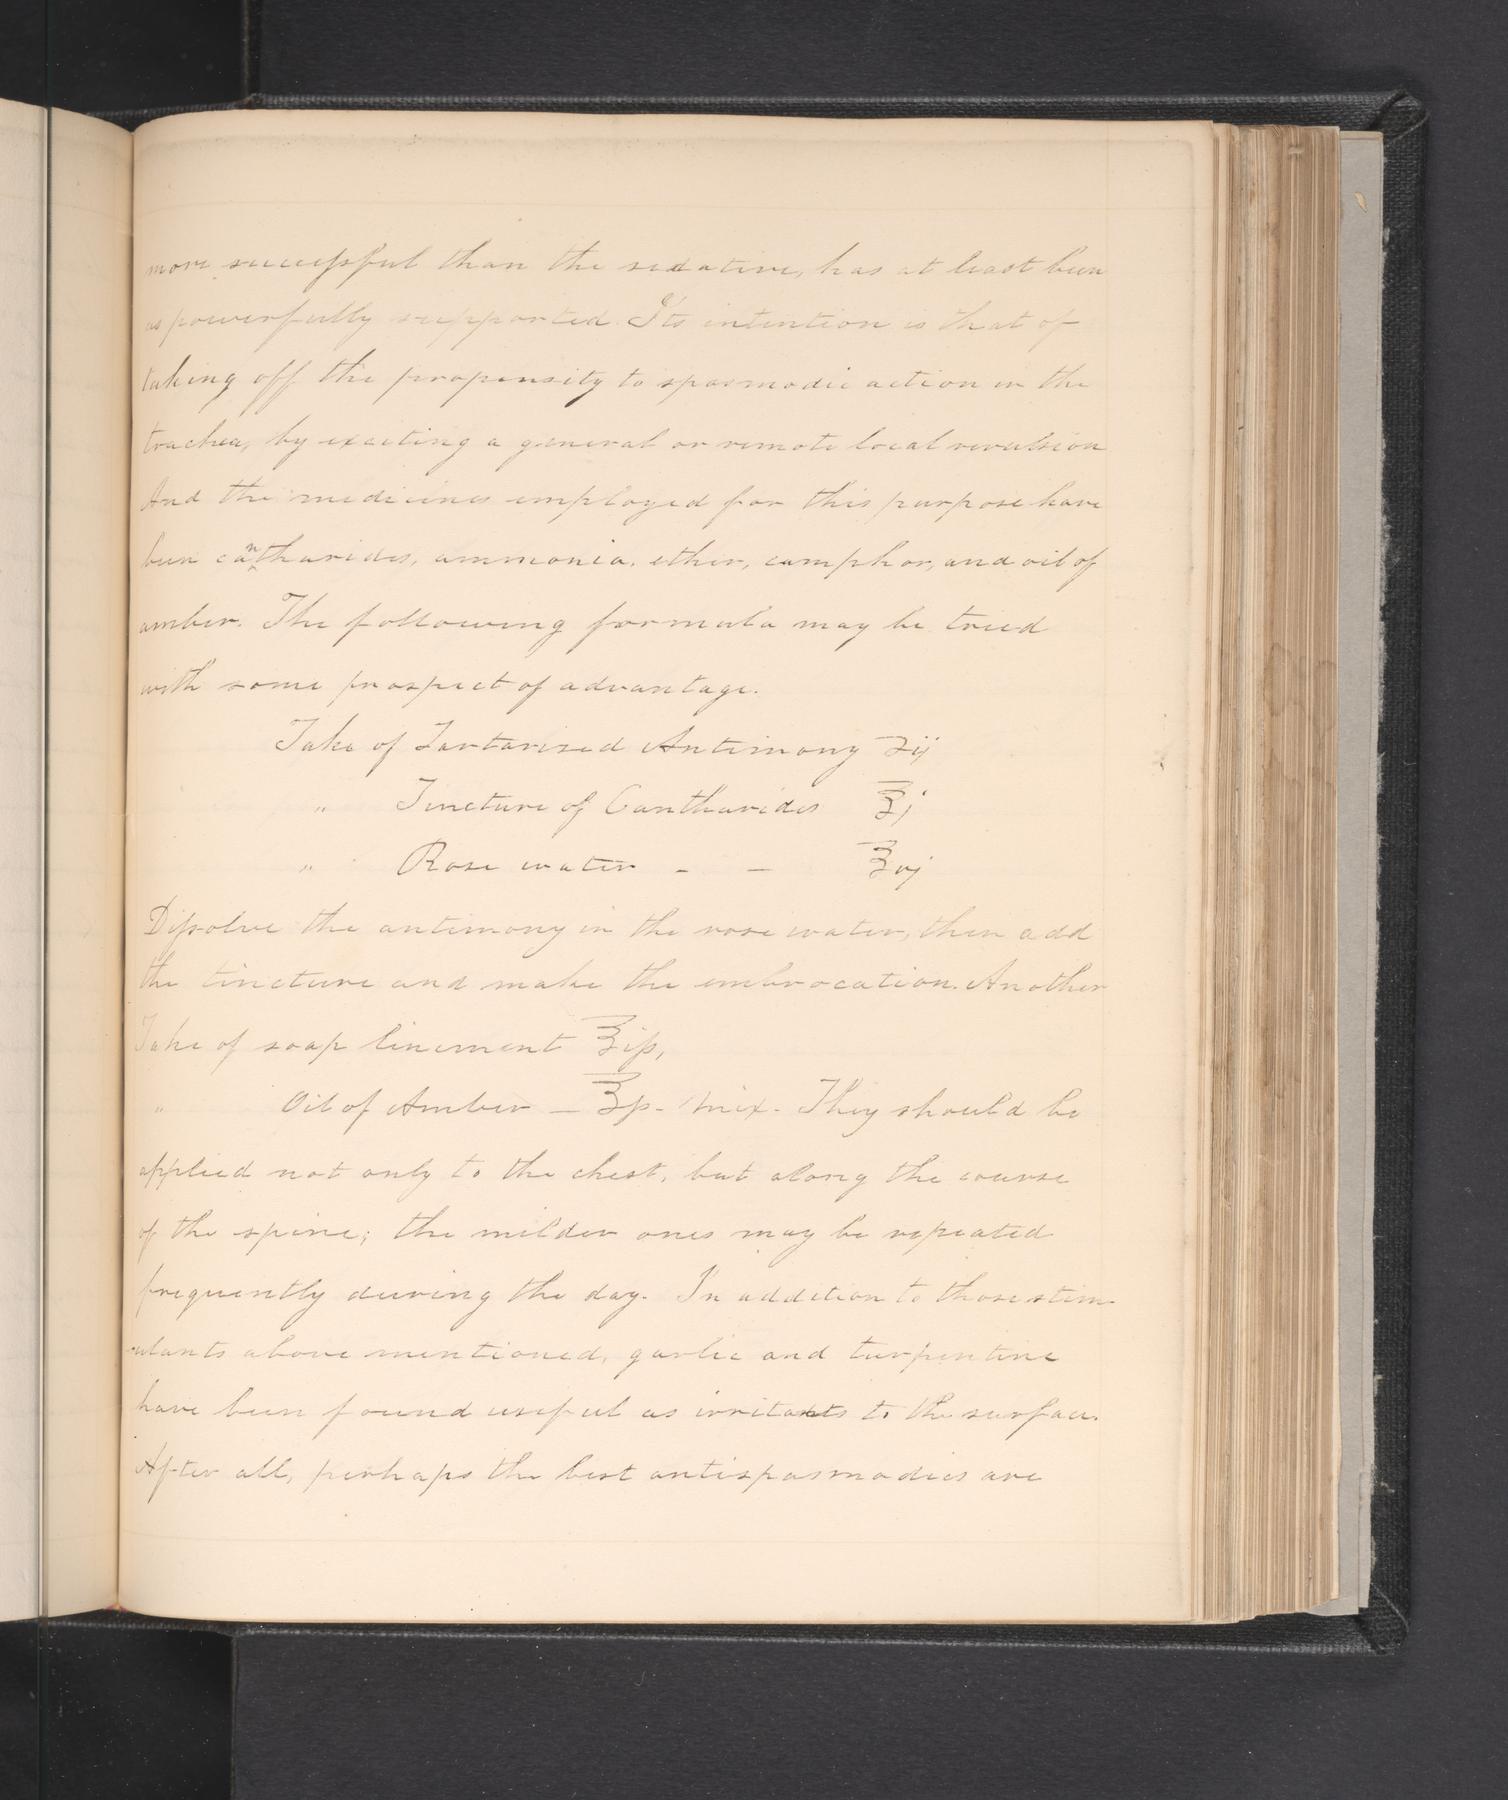 more successful than the sedative, has at least been
as powerfully supported. It's intention is that of
taking off the propensity to spasmodic action in the
trachea, by exciting a general or remote local revulsion
And the medicines employed for this purpose have
been cantharides, ammonia, ether, camphor, and oil of
amber. The following formula may be tried
with some prospect of advantage.
Take of Tartarised Antimony ʒij
" Tincture of Cantharides ℥j
" Rose water - - ℥vj
Dissolve the antimony in the rose water, then add
the tincture and make the embrocation. Another
Take of soap linement ℥iss,
" Oil of Amber — ℥ss - Mix - They should be
applied not only to the chest, but along the course
of the spine; the milder ones may be repeated
frequently during the day. In addition to those stim-
-ulants above mentioned, garlic and turpentine
have been found useful as irritants to the surface.
After all, perhaps the best antispasmodics are